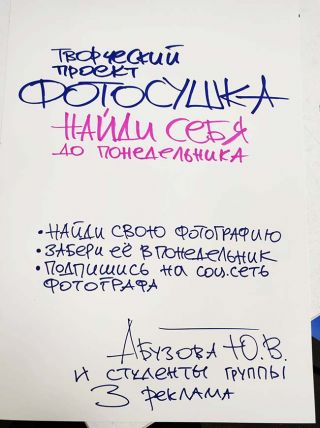 ТВОРЧЕСКИЙ
ПРОЕКТ
ФОТОСУШКА
НАЙДИ СЕБЯ
ДО ПОНЕДЕЛЬНИКА
• НАЙДИ СВОЮ ФОТОГРАФИЮ
• ЗАБЕРИ ЕЁ В ПОНЕДЕЛЬНИК
• ПОДПИШИСЬ НА СОЦ.СЕТЬ
ФОТОГРАФА
АБУЗОВА Ю.В.
И СТУДЕНТЫ ГРУППЫ
3 РЕКЛАМА